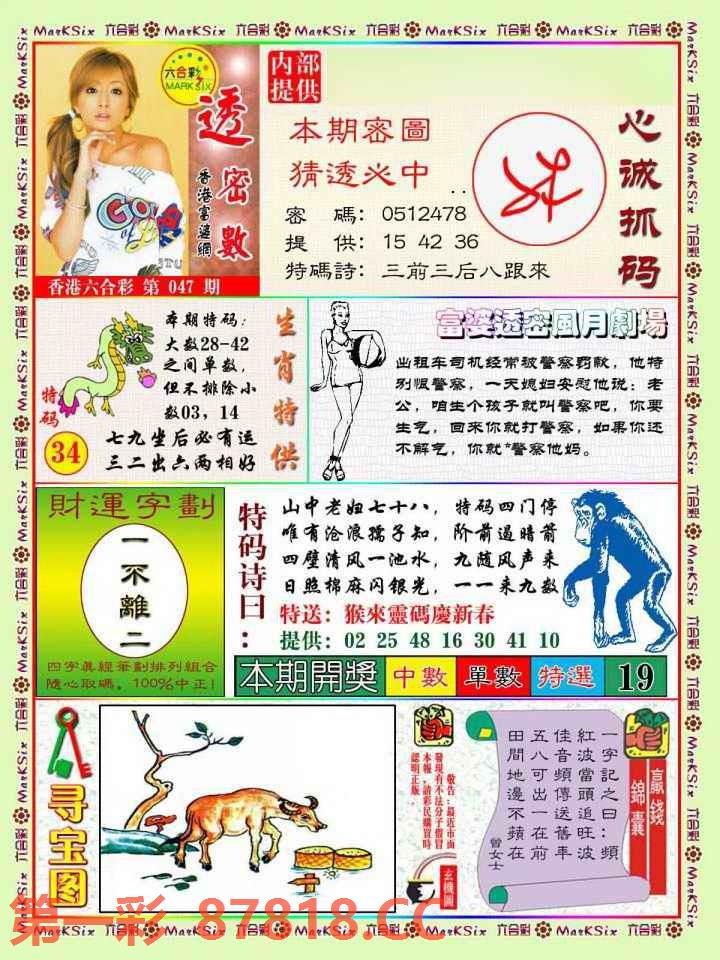 MarKSix 六合彩
六合彩
MARK SIX
透密數
香港富婆網
香港六合彩 第 047 期
内部
提供
本期密圖
猜透必中
密 碼: 0512478
提 供: 15 42 36
特碼詩: 三前三后八跟來
心诚抓码
本期特码:
大数28-42
之间单数,
但不排除小
数03, 14
七九坐后必有运
三二出六两相好
特码
34
生肖特供
富婆透密風月劇場
出租车司机经常被警察罚款, 他特
别恨警察, 一天媳妇安慰他说: 老
公, 咱生个孩子就叫警察吧, 你要
生气, 回来你就打警察, 如果你还
不解气, 你就*警察他妈。
財運字劃
一不離二
四字真經筆劃排列組合
隨心取碼, 100%中正!
特码诗曰:
山中老妞七十八, 特码四门停
唯有沧浪孺子知, 阶前遏暗箭
四壁清风一池水, 九随风声来
日照棉麻闪银光, 一一来九数
特送: 猴來靈碼慶新春
提供: 02 25 48 16 30 41 10
本期開獎 中數 單數 特選 19
寻宝图
敬告: 最近市面
發現有不法分子假冒
本報, 請彩民購買時
認明正版.
玄機圖
贏錢
錦囊
一字記之曰: 頻
紅波當頭追旺波
佳音頻傳送舊年
五八可出一在前
田間地邊不蘋在
曾女士
第一彩 87818.CC